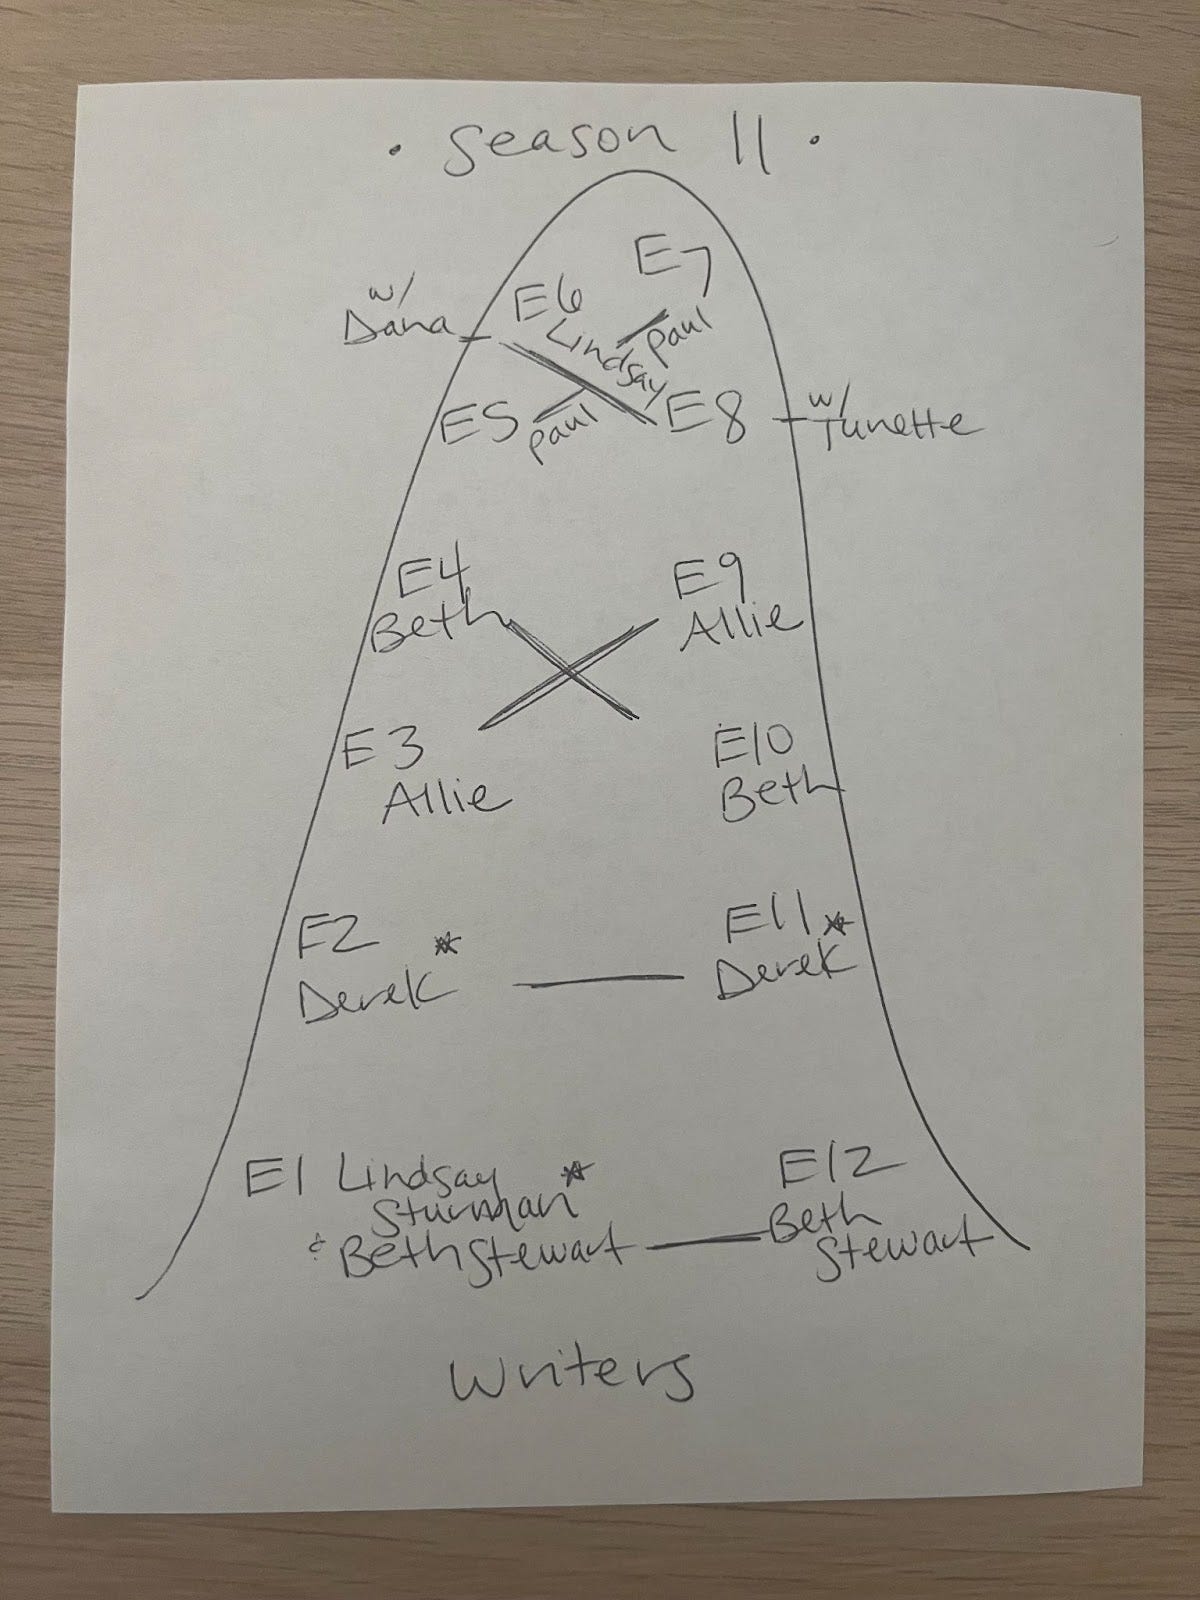 · Season 11 ·
E7
Paul
w/
Dana
E6
Lindsay
E5
Paul
E8
w/
Tunette
E4
Beth
E9
Allie
E3
Allie
E10
Beth
E2
Derek*
E11*
Derek
E1 Lindsay
Sturman*
& Beth Stewart
E12
Beth
Stewart
Writers